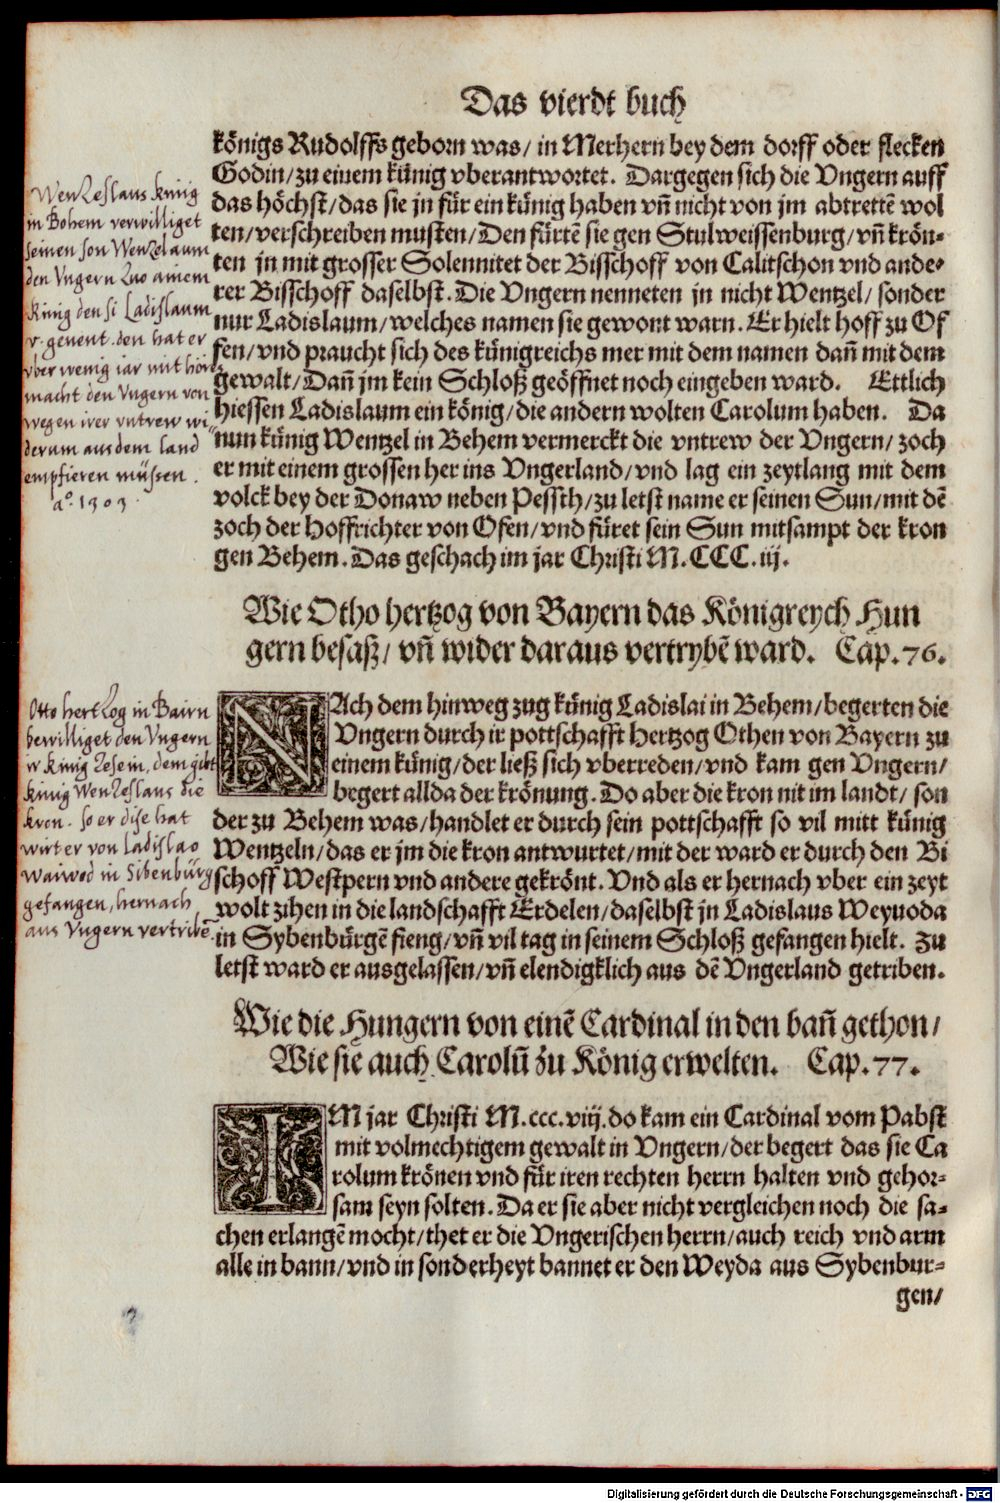 Das vierdt buch
königs Rudolffs geborn was/ in Merhern bey dem dorff oder flecken
Godin/ zu einem künig vberantwortet. Dargegen sich die Vngern auff
das höchst/ das sie jn für ein künig haben vñ nicht von jm abtrettē wol
ten/ verschreiben musten/ Den fürtē sie gen Stulweissenburg/ vñ krön-
ten jn mit grosser Solennitet der Bisschoff von Calitschon vnd ande-
rer Bisschoff daselbst. Die Vngern nenneten jn nicht Wentzel/ sonder
nur Ladislaum/ welches namen sie gewont warn. Er hielt hoff zu Of
fen/ vnd praucht sich des künigreichs mer mit dem namen dañ mit dem
gewalt/ Dañ jm kein Schloß geöffnet noch eingeben ward. Ettlich
hiessen Ladislaum ein könig/ die andern wolten Carolum haben. Da
nun künig Wentzel in Behem vermerckt die vntrew der Vngern/ zoch
er mit einem grossen her ins Vngerland/ vnd lag ein zeytlang mit dem
volck bey der Donaw neben Pessth/ zu letst name er seinen Sun/ mit dē
zoch der Hoffrichter von Ofen/ vnd füret sein Sun mitsampt der kron
gen Behem. Das geschach im jar Christi M.CCC.iij.
Wenzeslaus kinig
in Bohem verwilliget
seinen son Wenzelaum
den Vngern zuo ainem
Kinig den si Ladislaum
genent. den hat er
vber wenig iar mit hörs
macht den Vngern von
wegen irer vntrew wi
derum aus dem land
empfieren müssen.
a.º 1303.
Wie Otho hertzog von Bayern das Königreych Hun
gern besaß/ vñ wider daraus vertrybē ward. Cap.76.
NAch dem hinweg zug künig Ladislai in Behem/ begerten die
Vngern durch ir pottschafft Hertzog Othen von Bayern zu
einem künig/ der ließ sich vberreden/ vnd kam gen Vngern/
begert allda der krönung. Do aber die kron nit im landt/ son
der zu Behem was/ handlet er durch sein pottschafft so vil mitt künig
Wentzeln/ das er jm die kron antwurtet/ mit der ward er durch den Bi
schoff Westpern vnd andere gekrönt. Vnd als er hernach vber ein zeyt
wolt zihen in die landschafft Erdelen/ daselbst jn Ladislaus Weyuoda
in Sybenbürgē fieng/ vñ vil tag in seinem Schloß gefangen hielt. Zu
letst ward er ausgelassen/ vñ elendigklich aus dē Vngerland getriben.
Otto hertzog in Bairn
bewilliget den Vngern
ir kinig zesein, dem gibt
kinig Wenzeslaus die
kron. so er dise hat
wirt er von Ladislao
Waiwod in Sibenbürg
gefangen, hernach
aus Vngern vertribē.
Wie die Hungern von einē Cardinal in den bañ gethon/
Wie sie auch Carolū zu König erwelten. Cap.77.
IM jar Christi M.ccc.viij. do kam ein Cardinal vom Pabst
mit volmechtigem gewalt in Vngern/ der begert das sie Ca
rolum krönen vnd für iren rechten herrn halten vnd gehor-
sam seyn solten. Da er sie aber nicht vergleichen noch die sa-
chen erlangē mocht/ thet er die Vngerischen herrn/ auch reich vnd arm
alle in bann/ vnd in sonderheyt bannet er den Weyda aus Sybenbur-
gen/
Digitalisierung gefördert durch die Deutsche Forschungsgemeinschaft - DFG